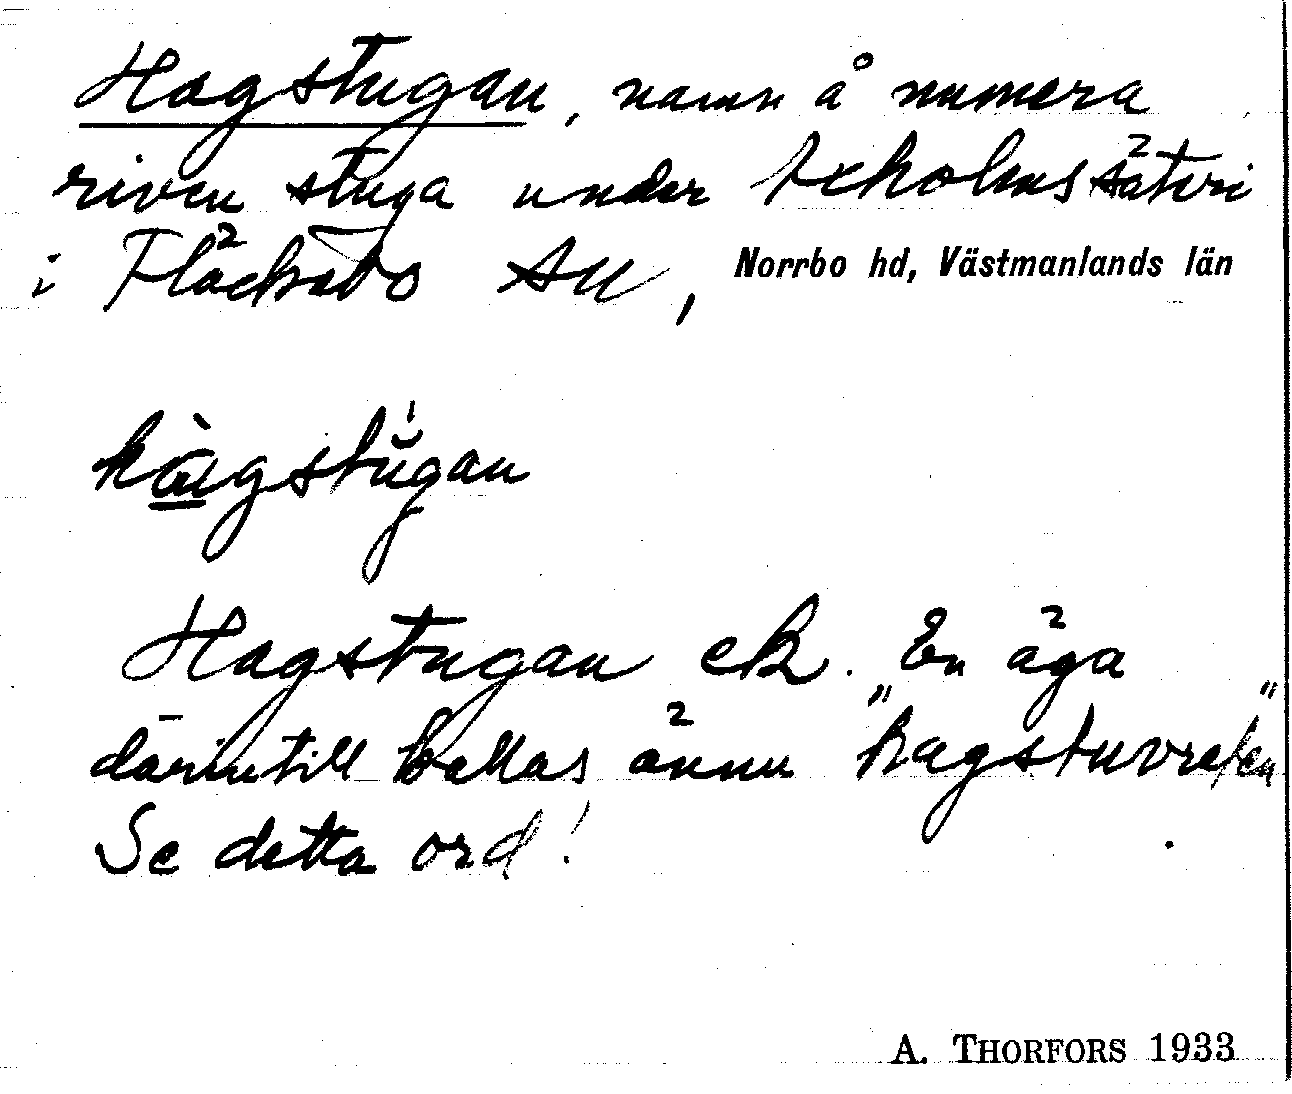 Hagstugan, namn å numera
riven stuga under Axholms säteri
i Fläckebo sn,
Norrbo hd, Västmanlands län
hàgstŭgan
Hagstugan ek. En äga
därintill kallas ännu "hagstuvreten"
Se detta ord!
A. THORFORS 1933